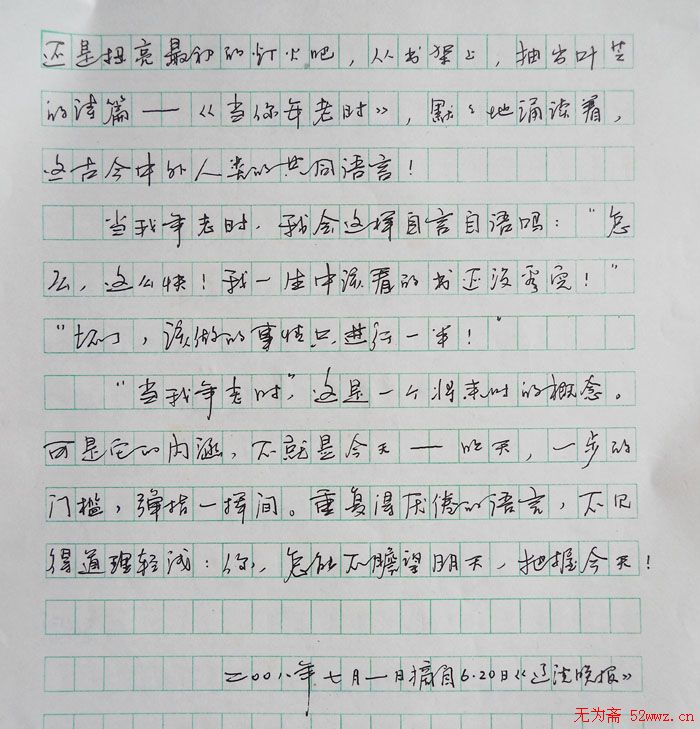 还是扭亮最初的灯火吧，从书架上，抽出叶芝
的诗篇——《当你年老时》，默默地诵读着，
这古今中外人类的共同语言！
当我年老时，我会这样自言自语吗：“怎
么，这么快！我一生中该看的书还没看完！”
“ ，该做的事情只进行一半！”
“当我年老时”，这是一个将来时的概念。
可是它的内涵，不就是今天——昨天，一步的
门槛，弹指一挥间。重复得厌倦的语言，不见
得道理轻浅：你，怎能不瞻望明天，把握今天！
二00八年七月一日摘自6.20日《辽沈晚报》
无为斋 52wwz.cn